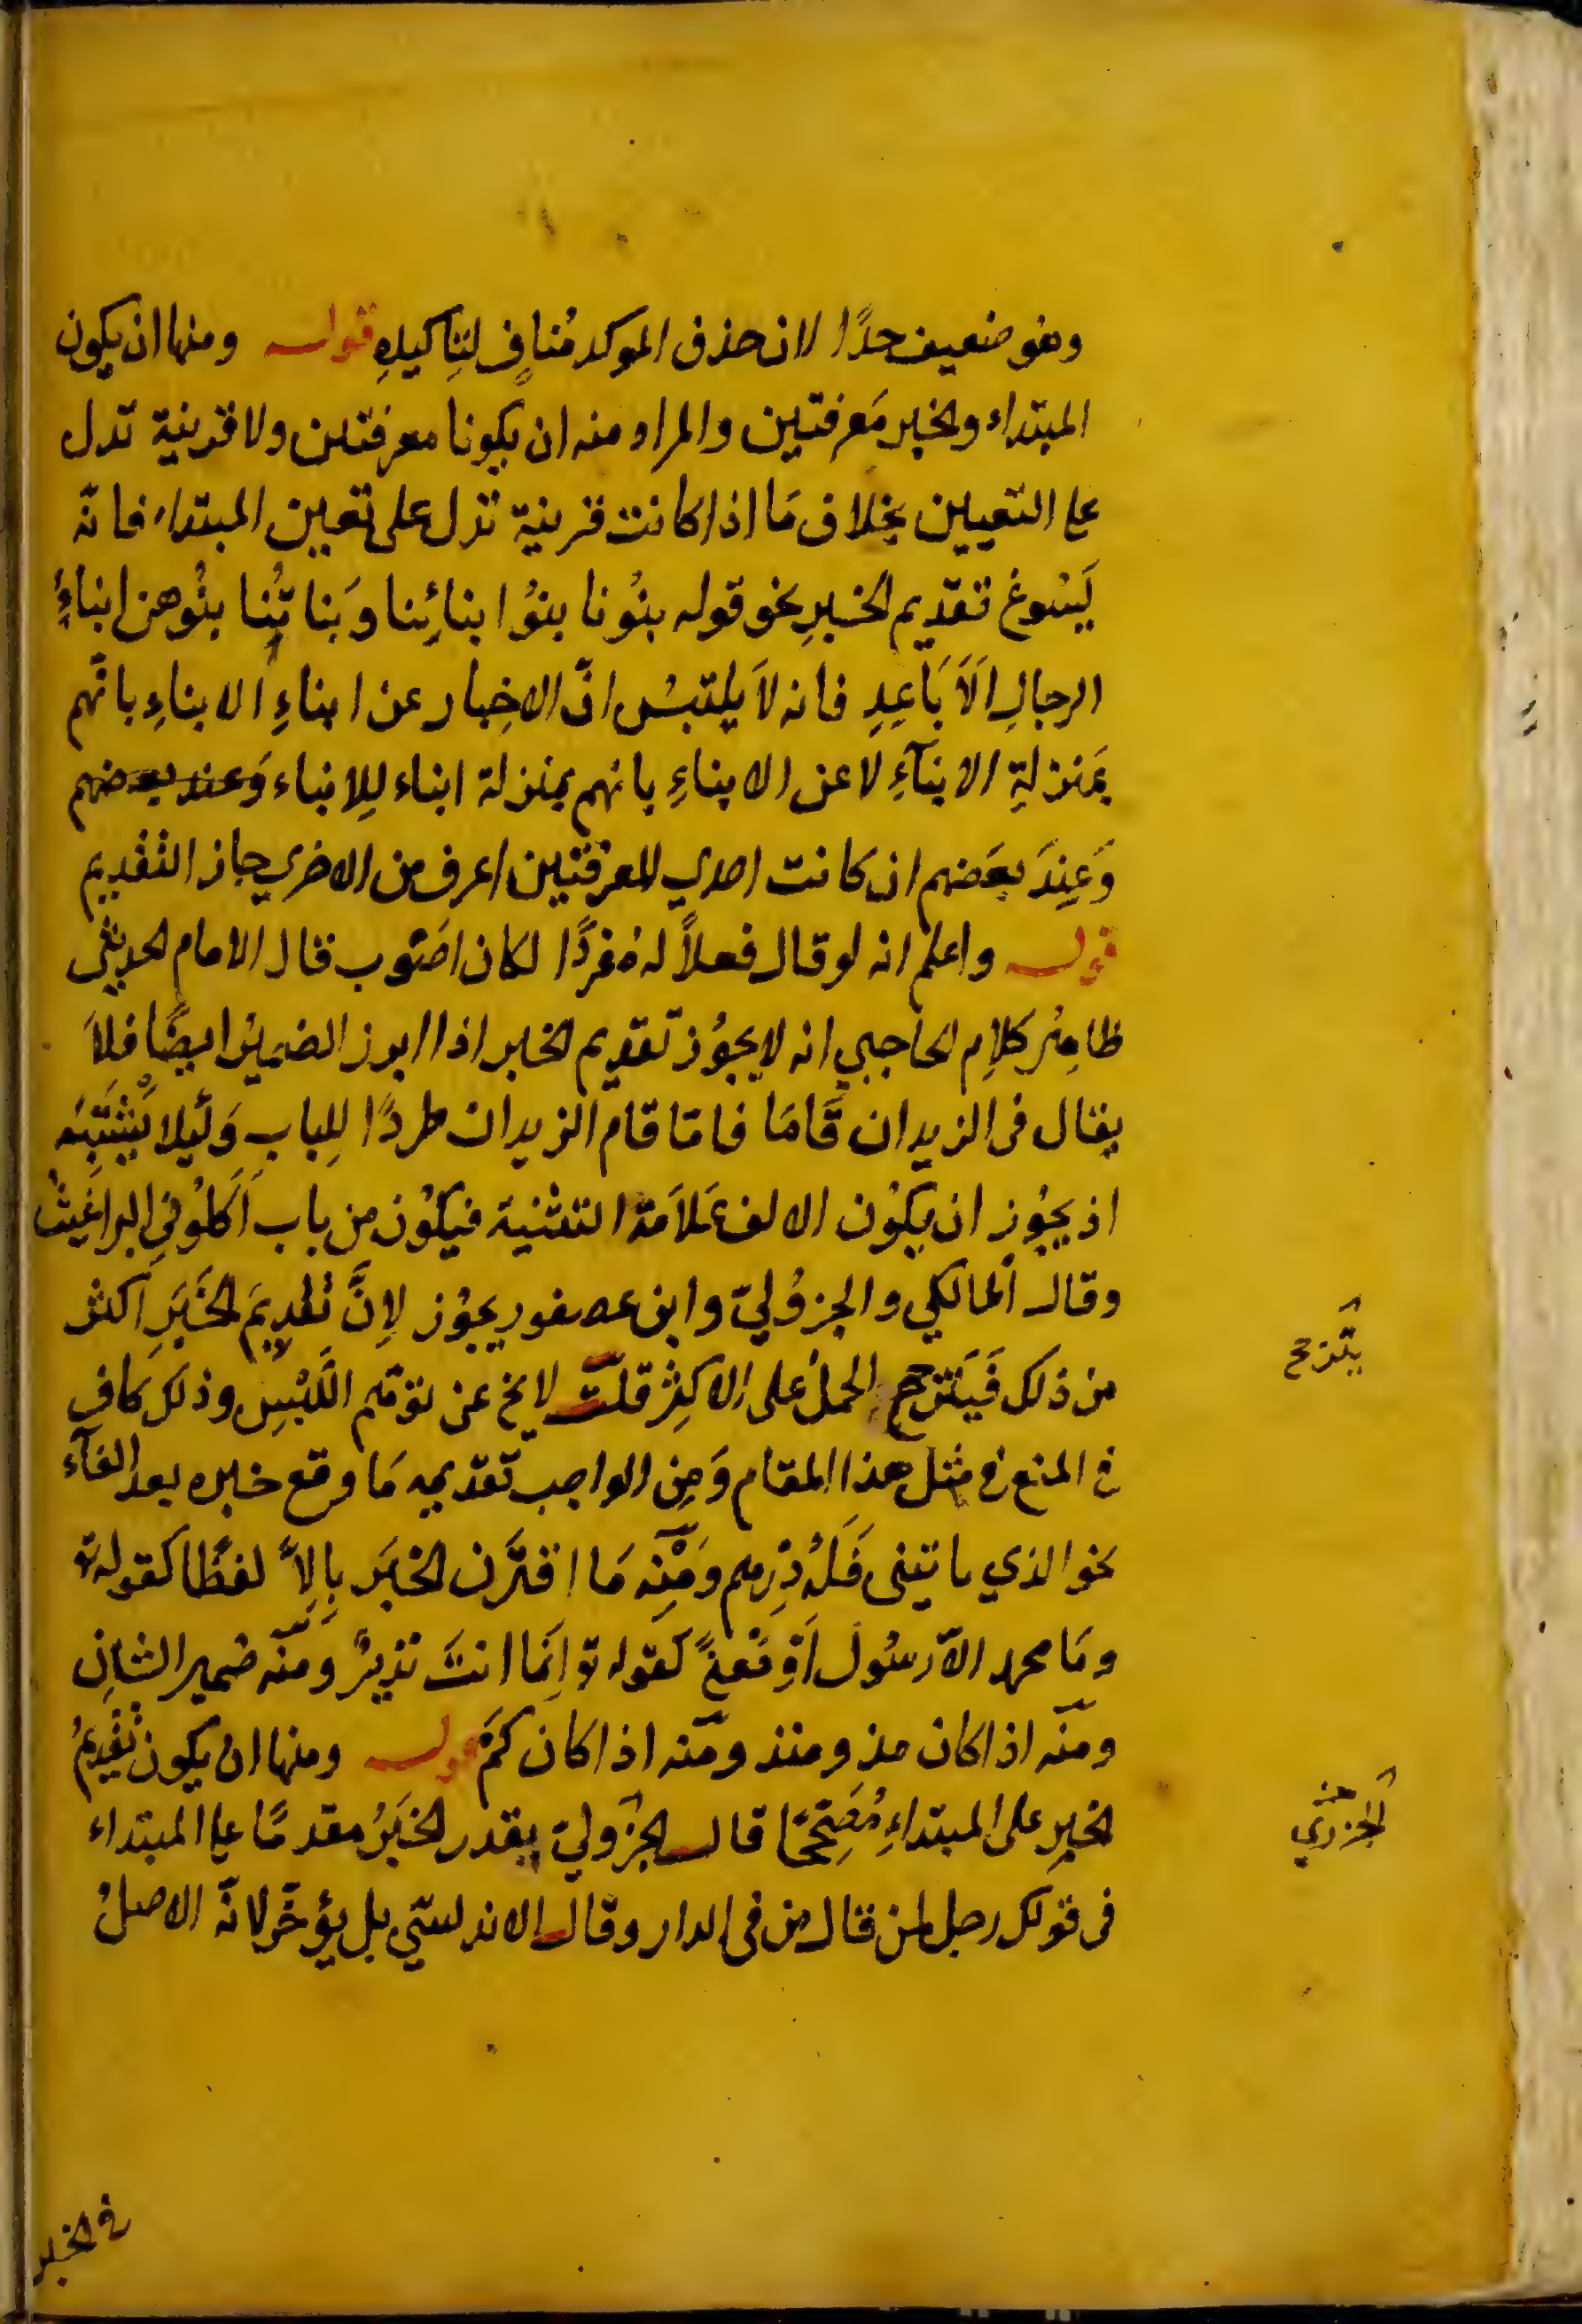 وهو ضعيف جدًا لان حذف الموكد مُنافٍ لتاكيدِهِ قوله ومنها ان يكون
المبتداء والخبر مَعرفتين والمراد منه ان يكونا معرفتين ولا قرينة تدل
على التعيين بخلاف مَا اذا كانت قرينة تدل على تعيين المبتداء فانّه
يَسُوغ تقديم الخبرِ نحو قوله بنُونا بنوُا ابنائِنا وبَناتُنا بنُوهن ابناءُ
الرجالِ اَلاَبَاعِدِ فانه لاَ يلتبسُ انّ الاخِبار عن ابناءِ الابناءِ بانّهم
بمَنزلةِ الابنآءِ لا عن الابناءِ بانهم بمنزلة ابناء لِلابناء وَعند بعضهم
وَعِندَ بعَضهم ان كانت احدي المعرفتين اعرف من الاخري جاز التقديم
قوله واعلم انه لو قال فعلاً له مُفردًا لكان اصَوب قال الامام الحديثي
ظاهِرُ كلاِم الحاجبي انه لا يجوُز تقديم الخبر اذا ابرز الضميرُ ايضًا فلاَ
يقال في الزيدان قَامَا قامَا قام الزيدان طردًا لِلباب وَلَيلا يَشْتَبِهَ
اذ يجوُز ان يكوُن الالف عَلاَمَة التثنية فيكوُن من باب اَكَلوُني البراغيثُ
وقال المالكي والجزوُليّ وابن عصفور يجوُز لاِنَّ تقديمَ الخَبَرِ اكثر
من ذلك فَيَترجح الحملُ على الاكثِر قلتُ لا يخ عن توهّم اللَبْسِ وذلك كافٍ
في المنع في مثل هذا المقام وَمِن الواجب تقديمه مَا وقع خبره بعد الفآء
نحو الذي ياتيني فَلَهُ دِرهم وَمِنْه مَا اقترَن الخبَر بِاِلاَّ لفظًا كقوله تع
ومَا محمد الاّ رسُول اَوْ مَعنىً كقوله تع اِنَمّا انتَ نذيرٌ ومنه ضمير الشان
ومنه اذا كان مذ ومنذ ومنه اذا كان كمَ قوله ومنها ان يكون تَقديمُ
الخبرِ على المبتداءِ مُصَحِّحًا قال الجزُوليّ يقدر الخبَرُ مقدمًا على المبتداء
في قولك رجل لمن قال من في الدار وقال الاندلسّي بل يؤخّر لانّه الاصلُ
يترجح
الجزري
في الخبر